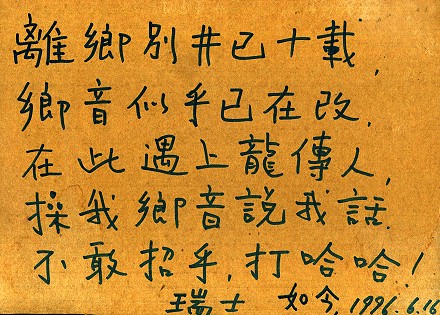 離鄉別井已十載,
鄉音似乎已在改.
在此遇上龍傳人,
操我鄉音說我話.
不敢招乎,打哈哈!
瑞士 如今,1996.6.16